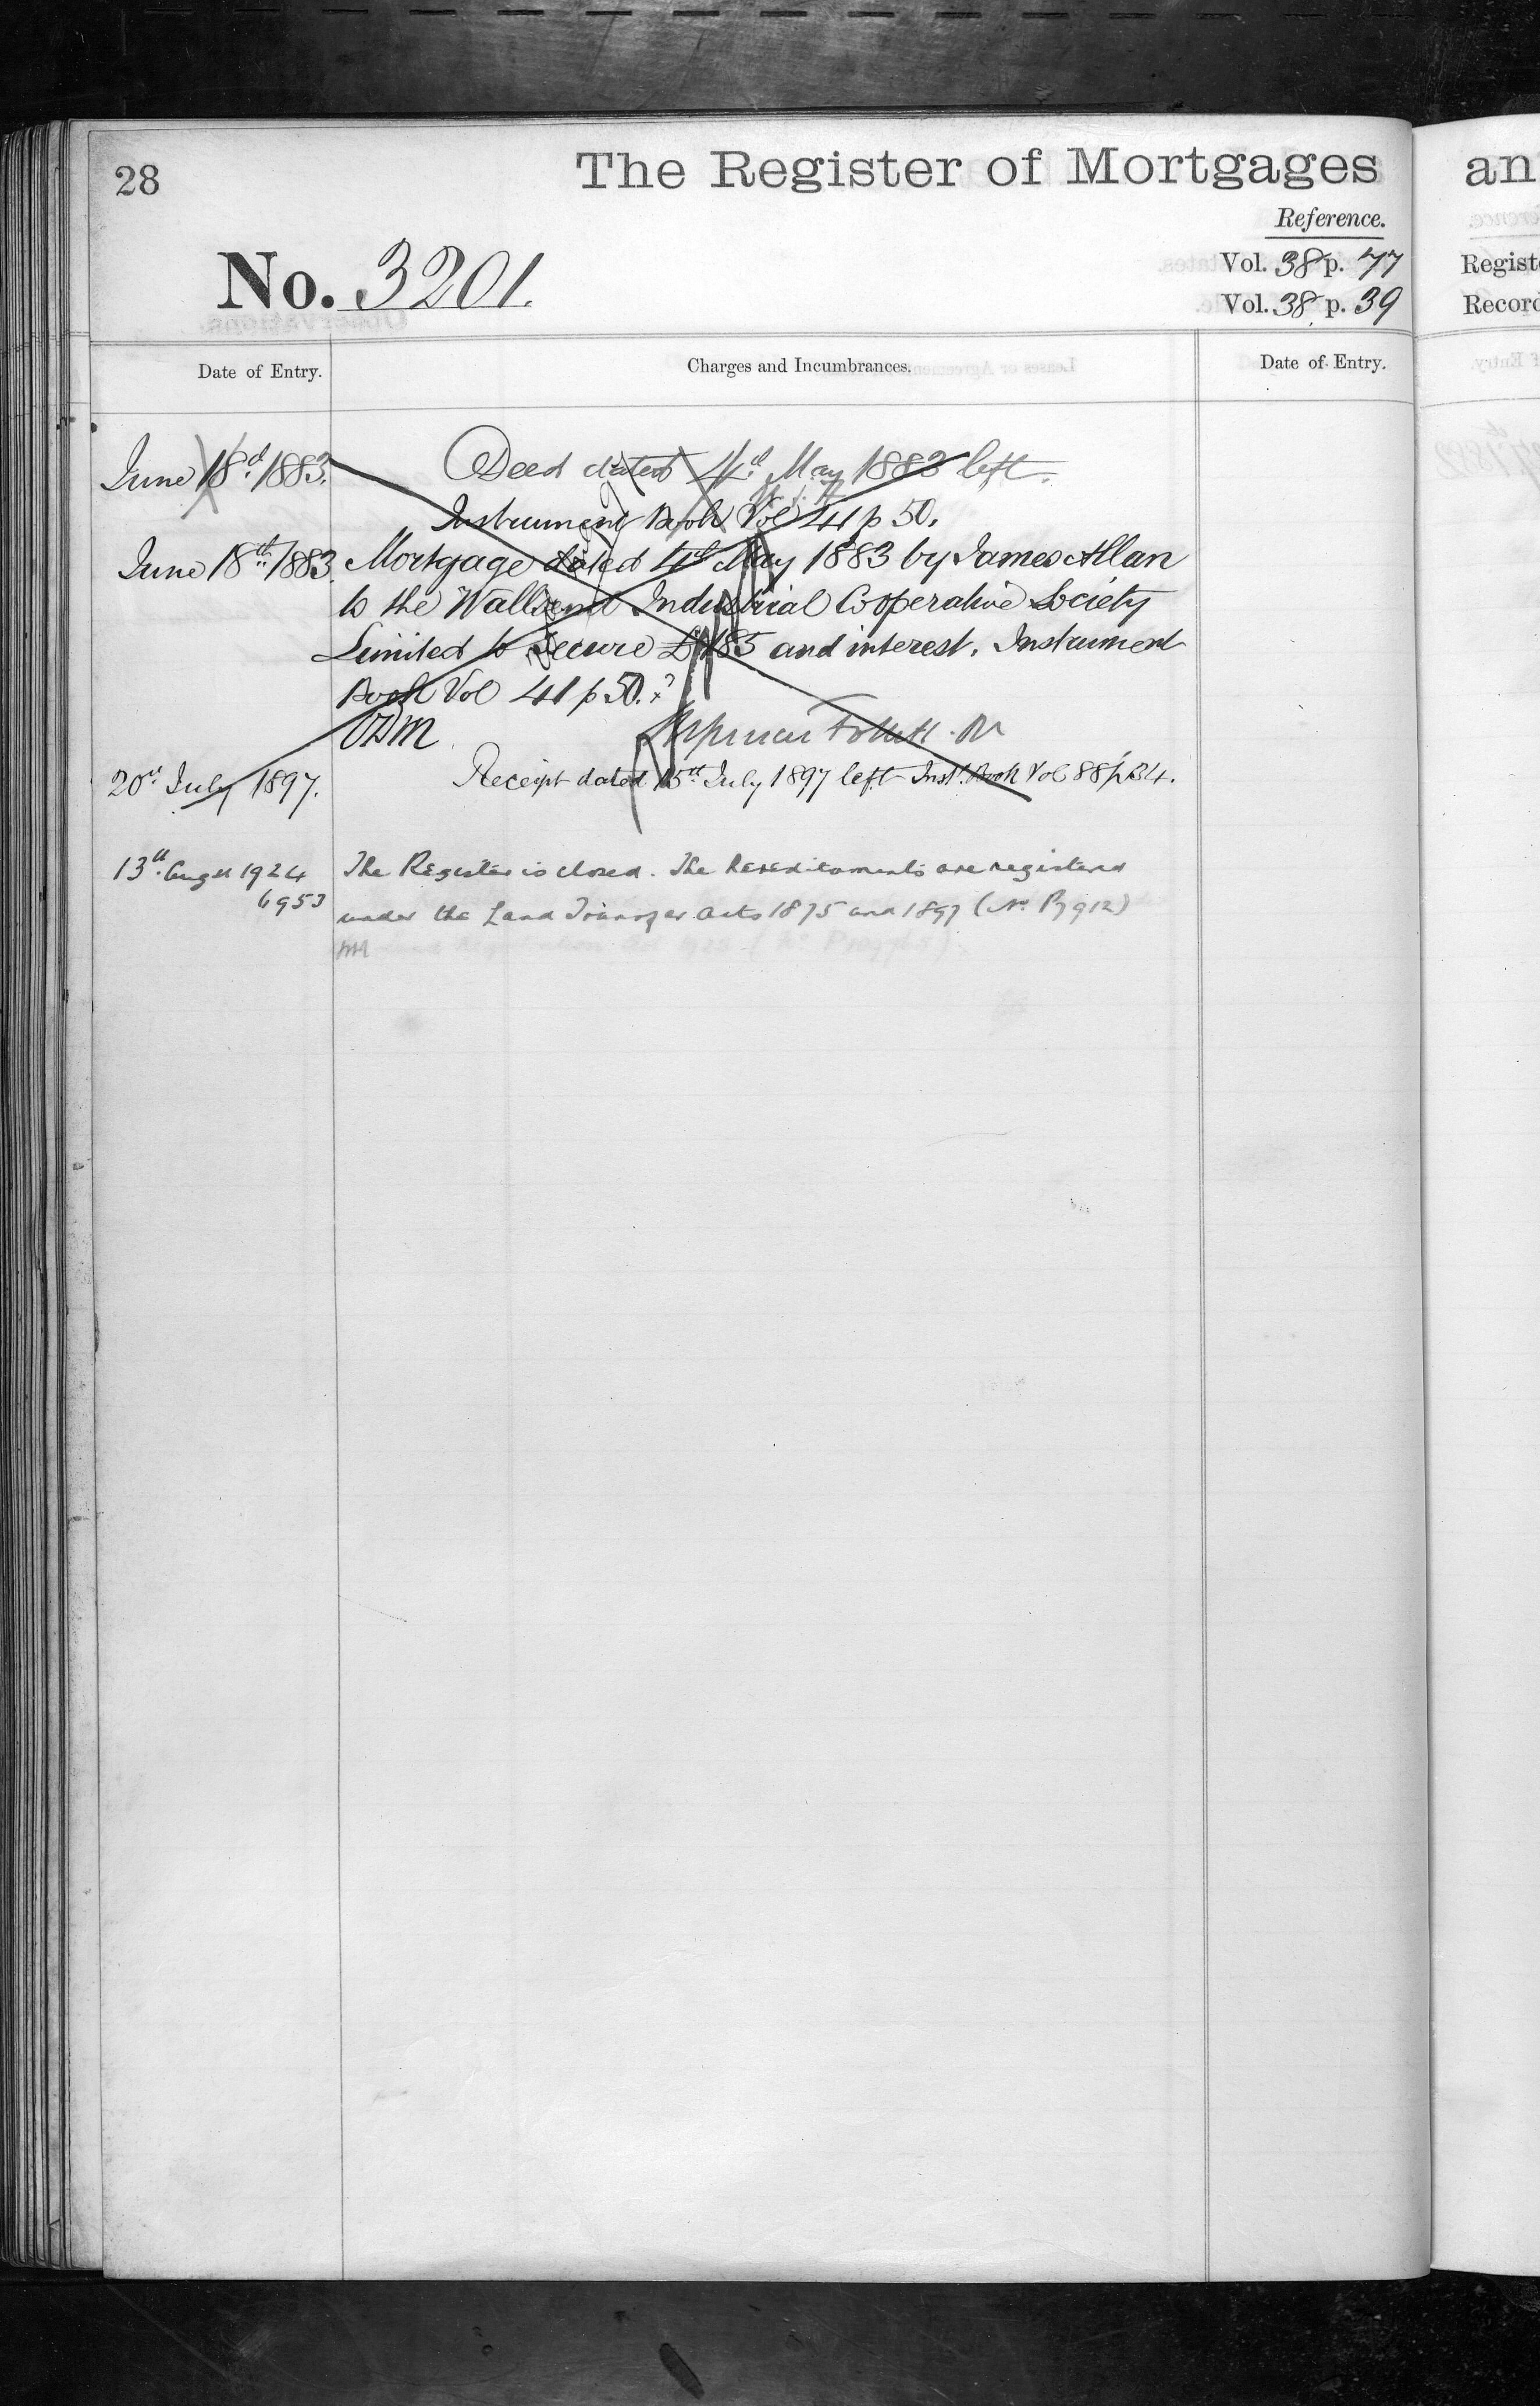 28
The Register of Mortgages
an
Reference.
No. 3201.
Vol. 38 p. 77
Regist
Vol. 38 p. 39
Record
Date of Entry.
Charges and Incumbrances.
Date of Entry.
June 18th 1883.
Deed dated 4th May 1883 left.
Instrument Book Vol 41 p 50.
June 18th 1883.
Mortgage dated 4th May 1883 by James Allan
to the Wallsend Industrial Cooperative Society
Limited to secure £185 and interest. Instrument
Book Vol 41 p 50.
20th July 1897.
Receipt dated 15th July 1897 left Inst. Book Vol 88 p 34.
13th Augst 1924
6953
The Register is closed. The hereditaments are registered
under the Land Transfer Acts 1875 and 1897 (No P7912)